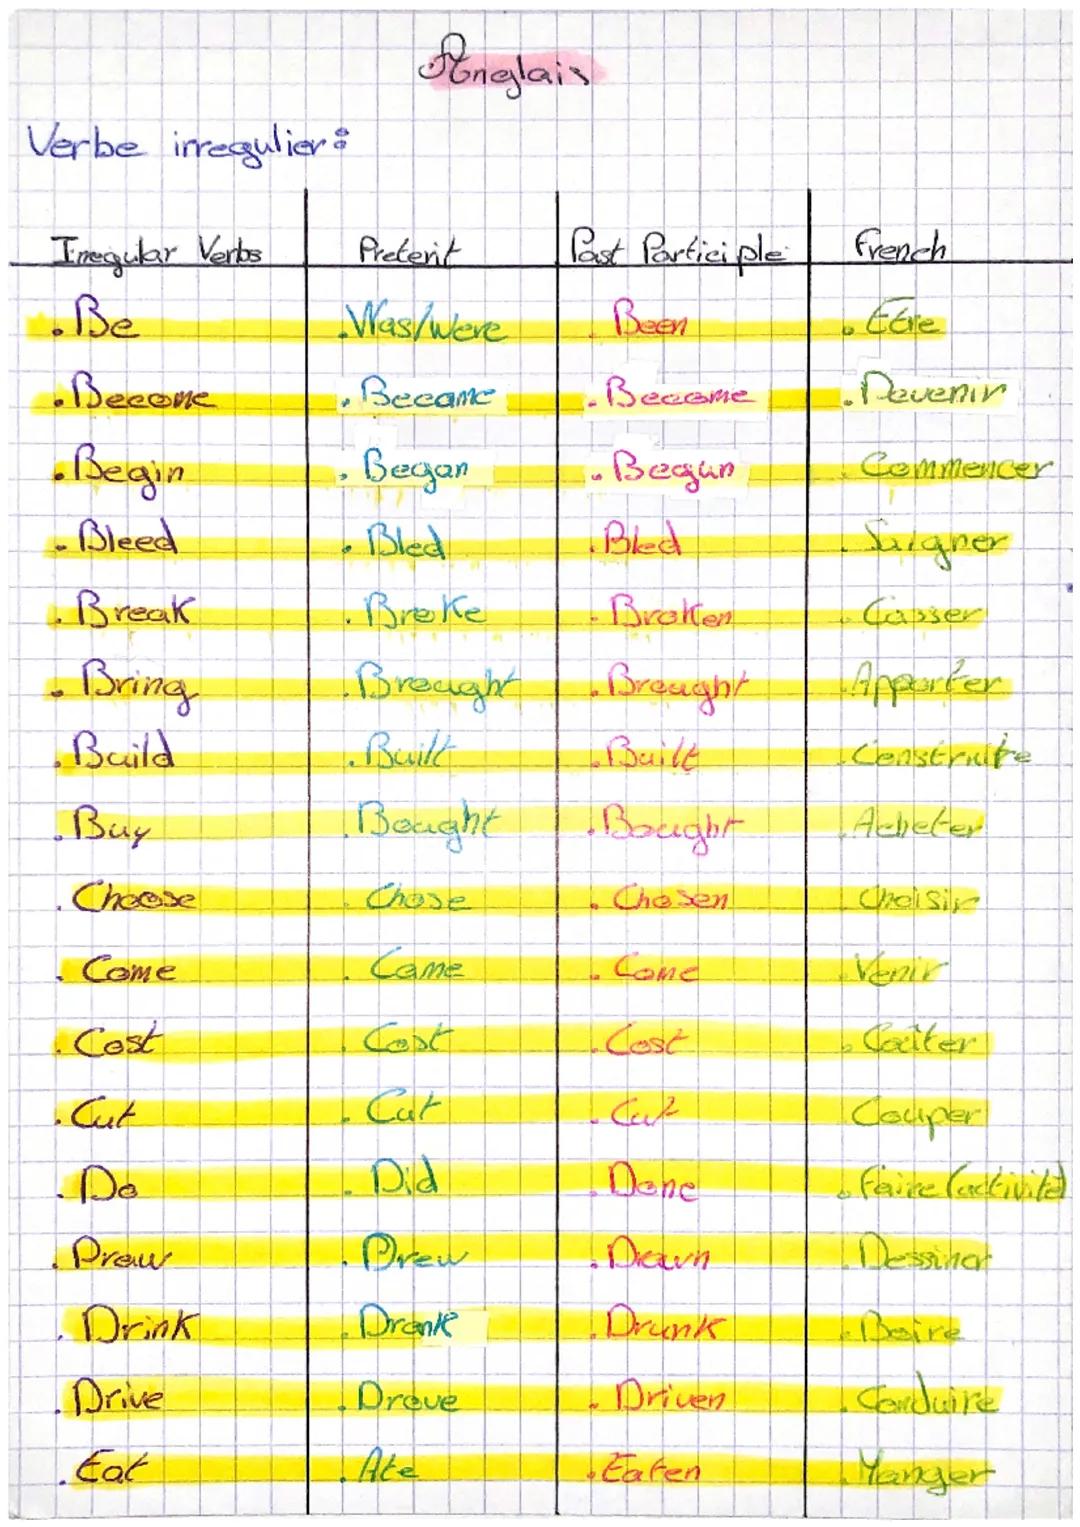 Anglais
Verbe irregulier :
Irregular Verbs Preterit Past Participle French
. Be . Was/Were . Been . Etre
. Become . Became . Become . Devenir
. Begin . Began . Begun . Commencer
. Bleed . Bled . Bled . Saigner
. Break . Broke . Broken . Casser
. Bring . Brought . Brought . Apporter
. Build . Built . Built . Construire
. Buy . Bought . Bought . Acheter
. Choose . Chose . Chosen . Choisir
. Come . Came . Come . Venir
. Cost . Cost . Cost . Coûter
. Cut . Cut . Cut . Couper
. Do . Did . Done . Faire (activité)
. Draw . Drew . Drawn . Dessiner
. Drink . Drank . Drunk . Boire
. Drive . Drove . Driven . Conduire
. Eat . Ate . Eaten . Manger